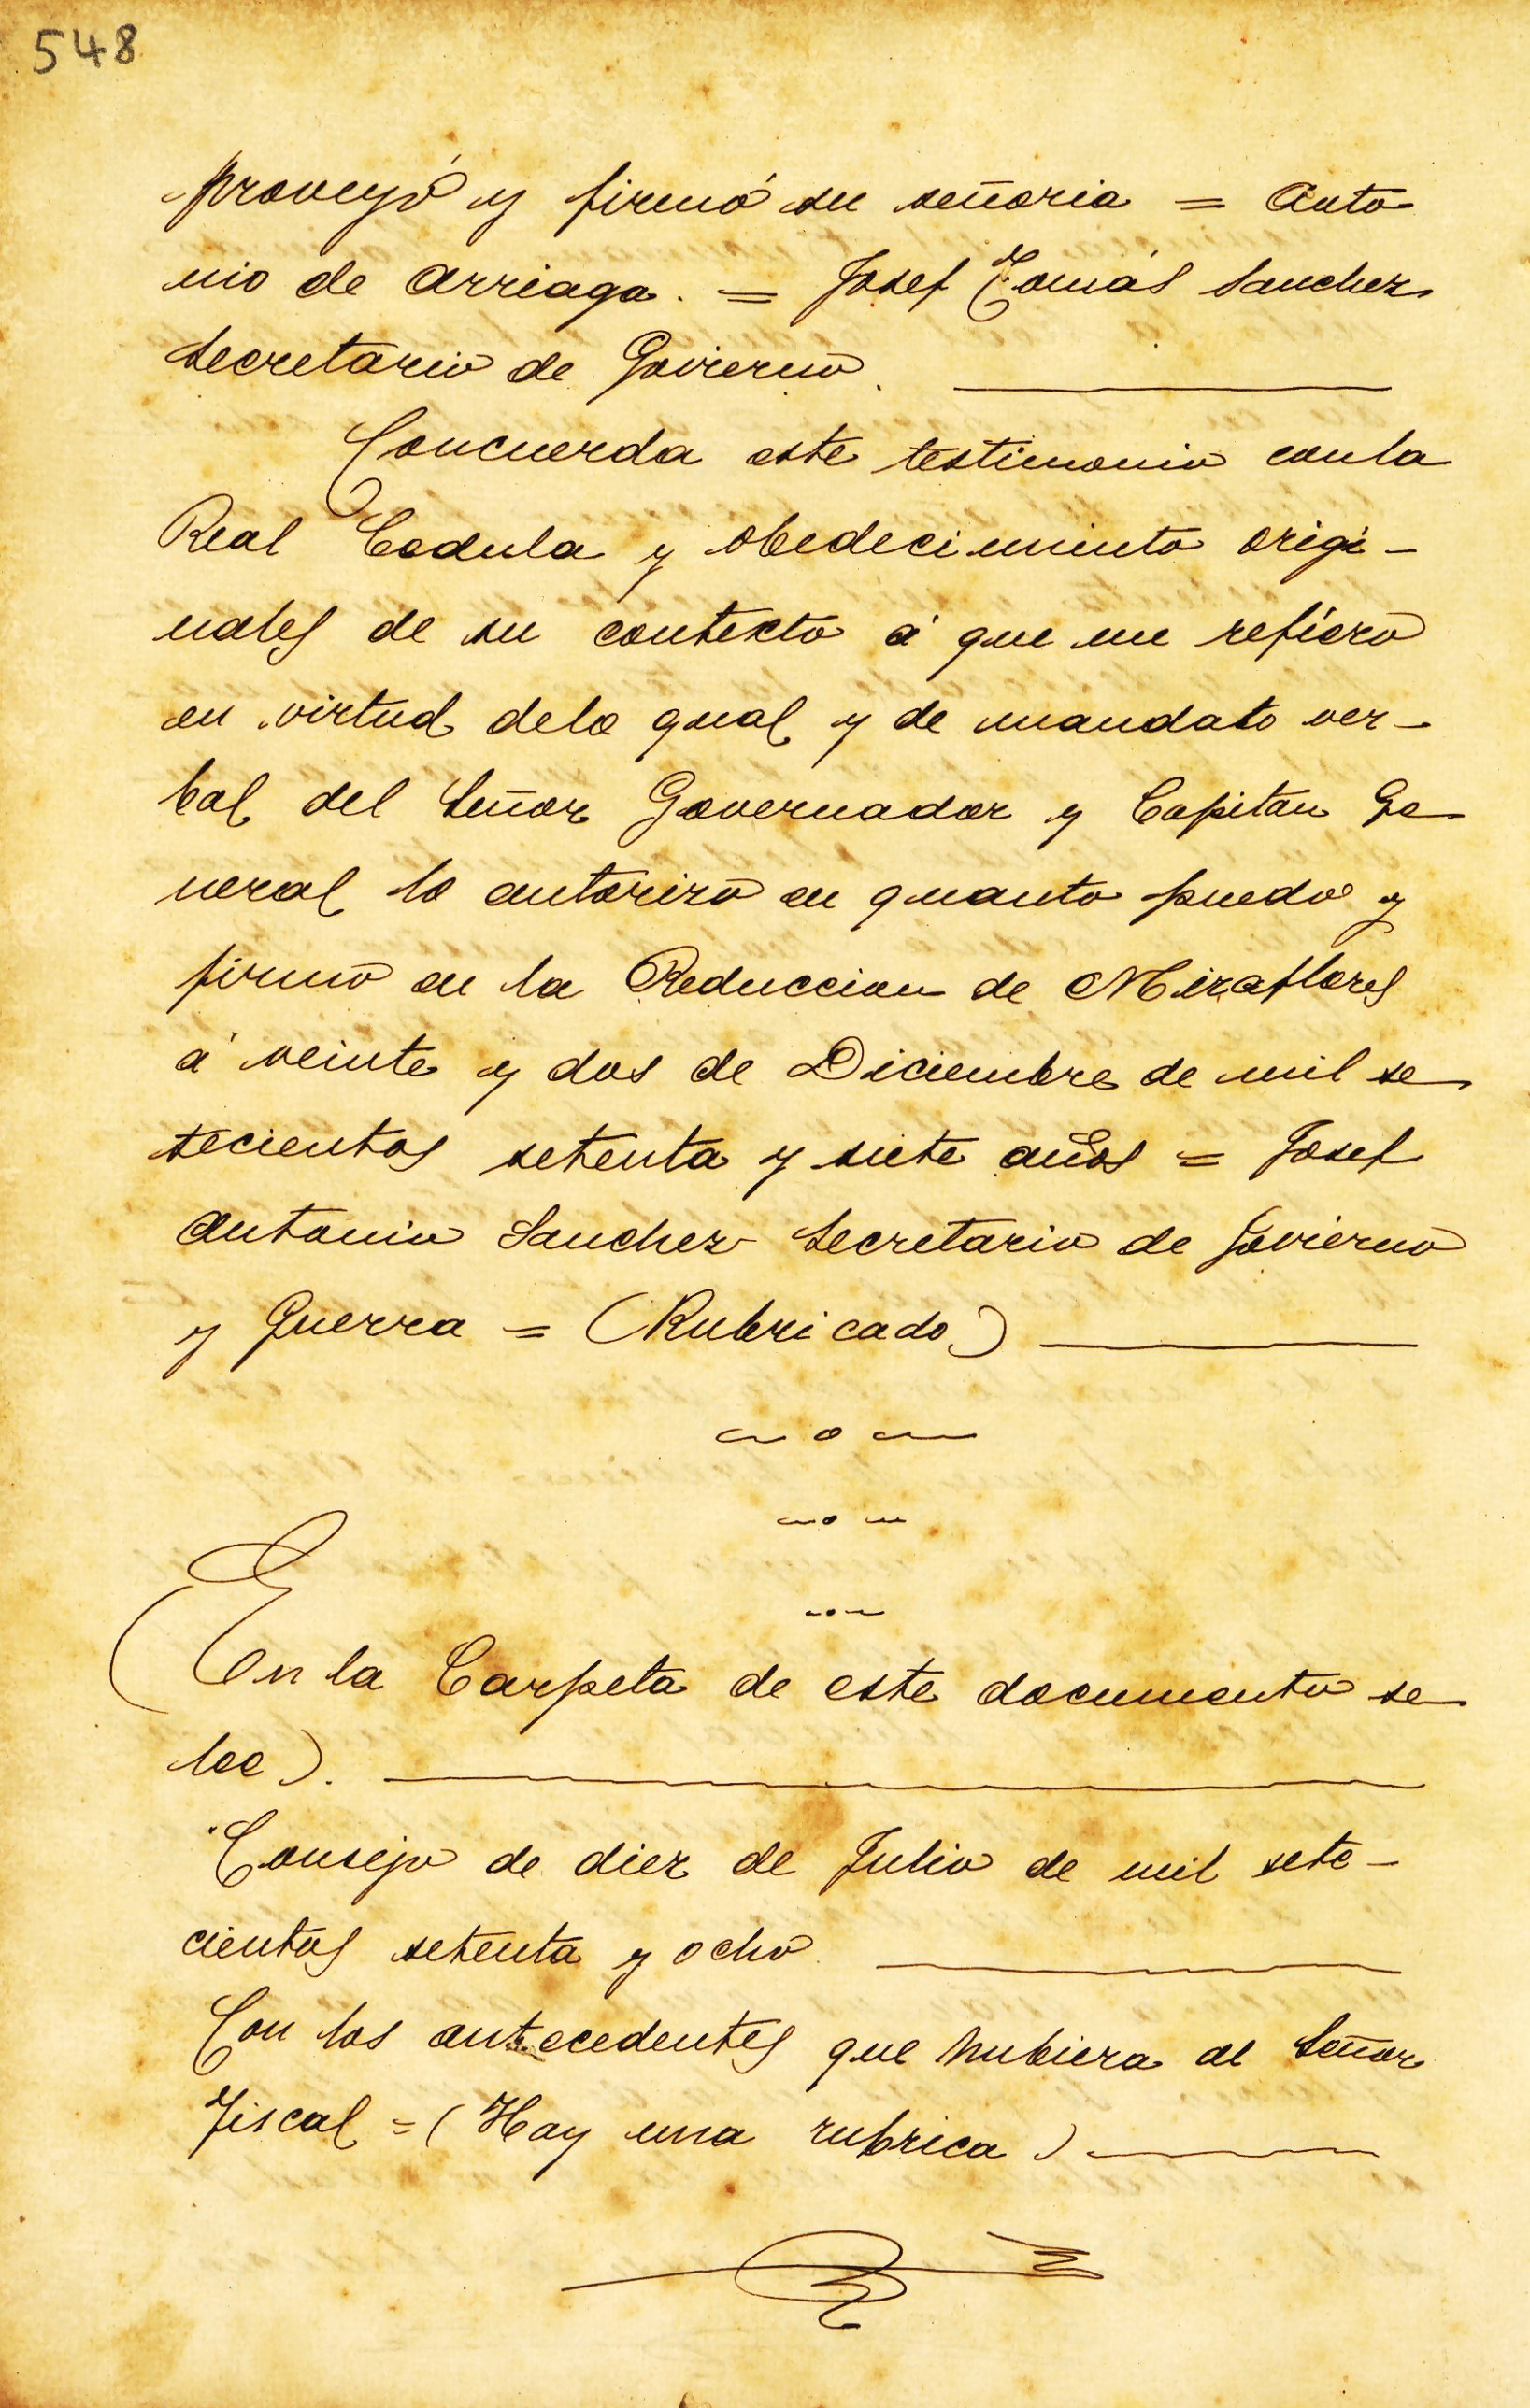 548
proveyó y firmó su señoria = Anto
nio de Arriaga. = Josef Tomás Sanchez
Secretario de Govierno.
Concuerda este testimonio con la
Real Cedula y obedecimiento origi-
nales de su contexto á que me refiero
en virtud delo qual y de mandato ver-
bal del Señor Governador y Capitan Ge
neral lo autorizo en quanto puedo y
firmo en la Reduccion de Miraflores
á veinte y dos de Diciembre de mil se
tecientos setenta y siete años = Josef
Antonio Sanchez Secretario de Govierno
y Guerra = (Rubricado)
(En la Carpeta de este documento se
lee).
Consejo de diez de Julio de mil sete-
cientos setenta y ocho.
Con los antecedentes que hubiera al Señor
Fiscal = (Hay una rubrica)